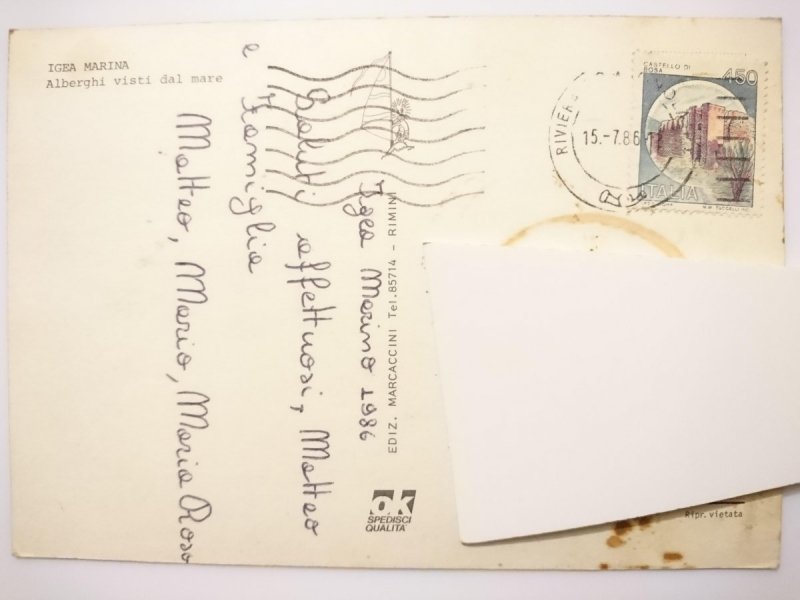 IGEA MARINA
Alberghi visti dal mare
Igea Marina 1986
Saluti affettuosi, Matteo
e Famiglia
Matteo, Mario, Maria Rosa
EDIZ. MARCACCINI Tel. 85714 - RIMINI
ok
SPEDISCI
QUALITA'
CASTELLO DI
ROSA
450
ITALIA
RIVIERA
15.-7.86
Ripr. vietata